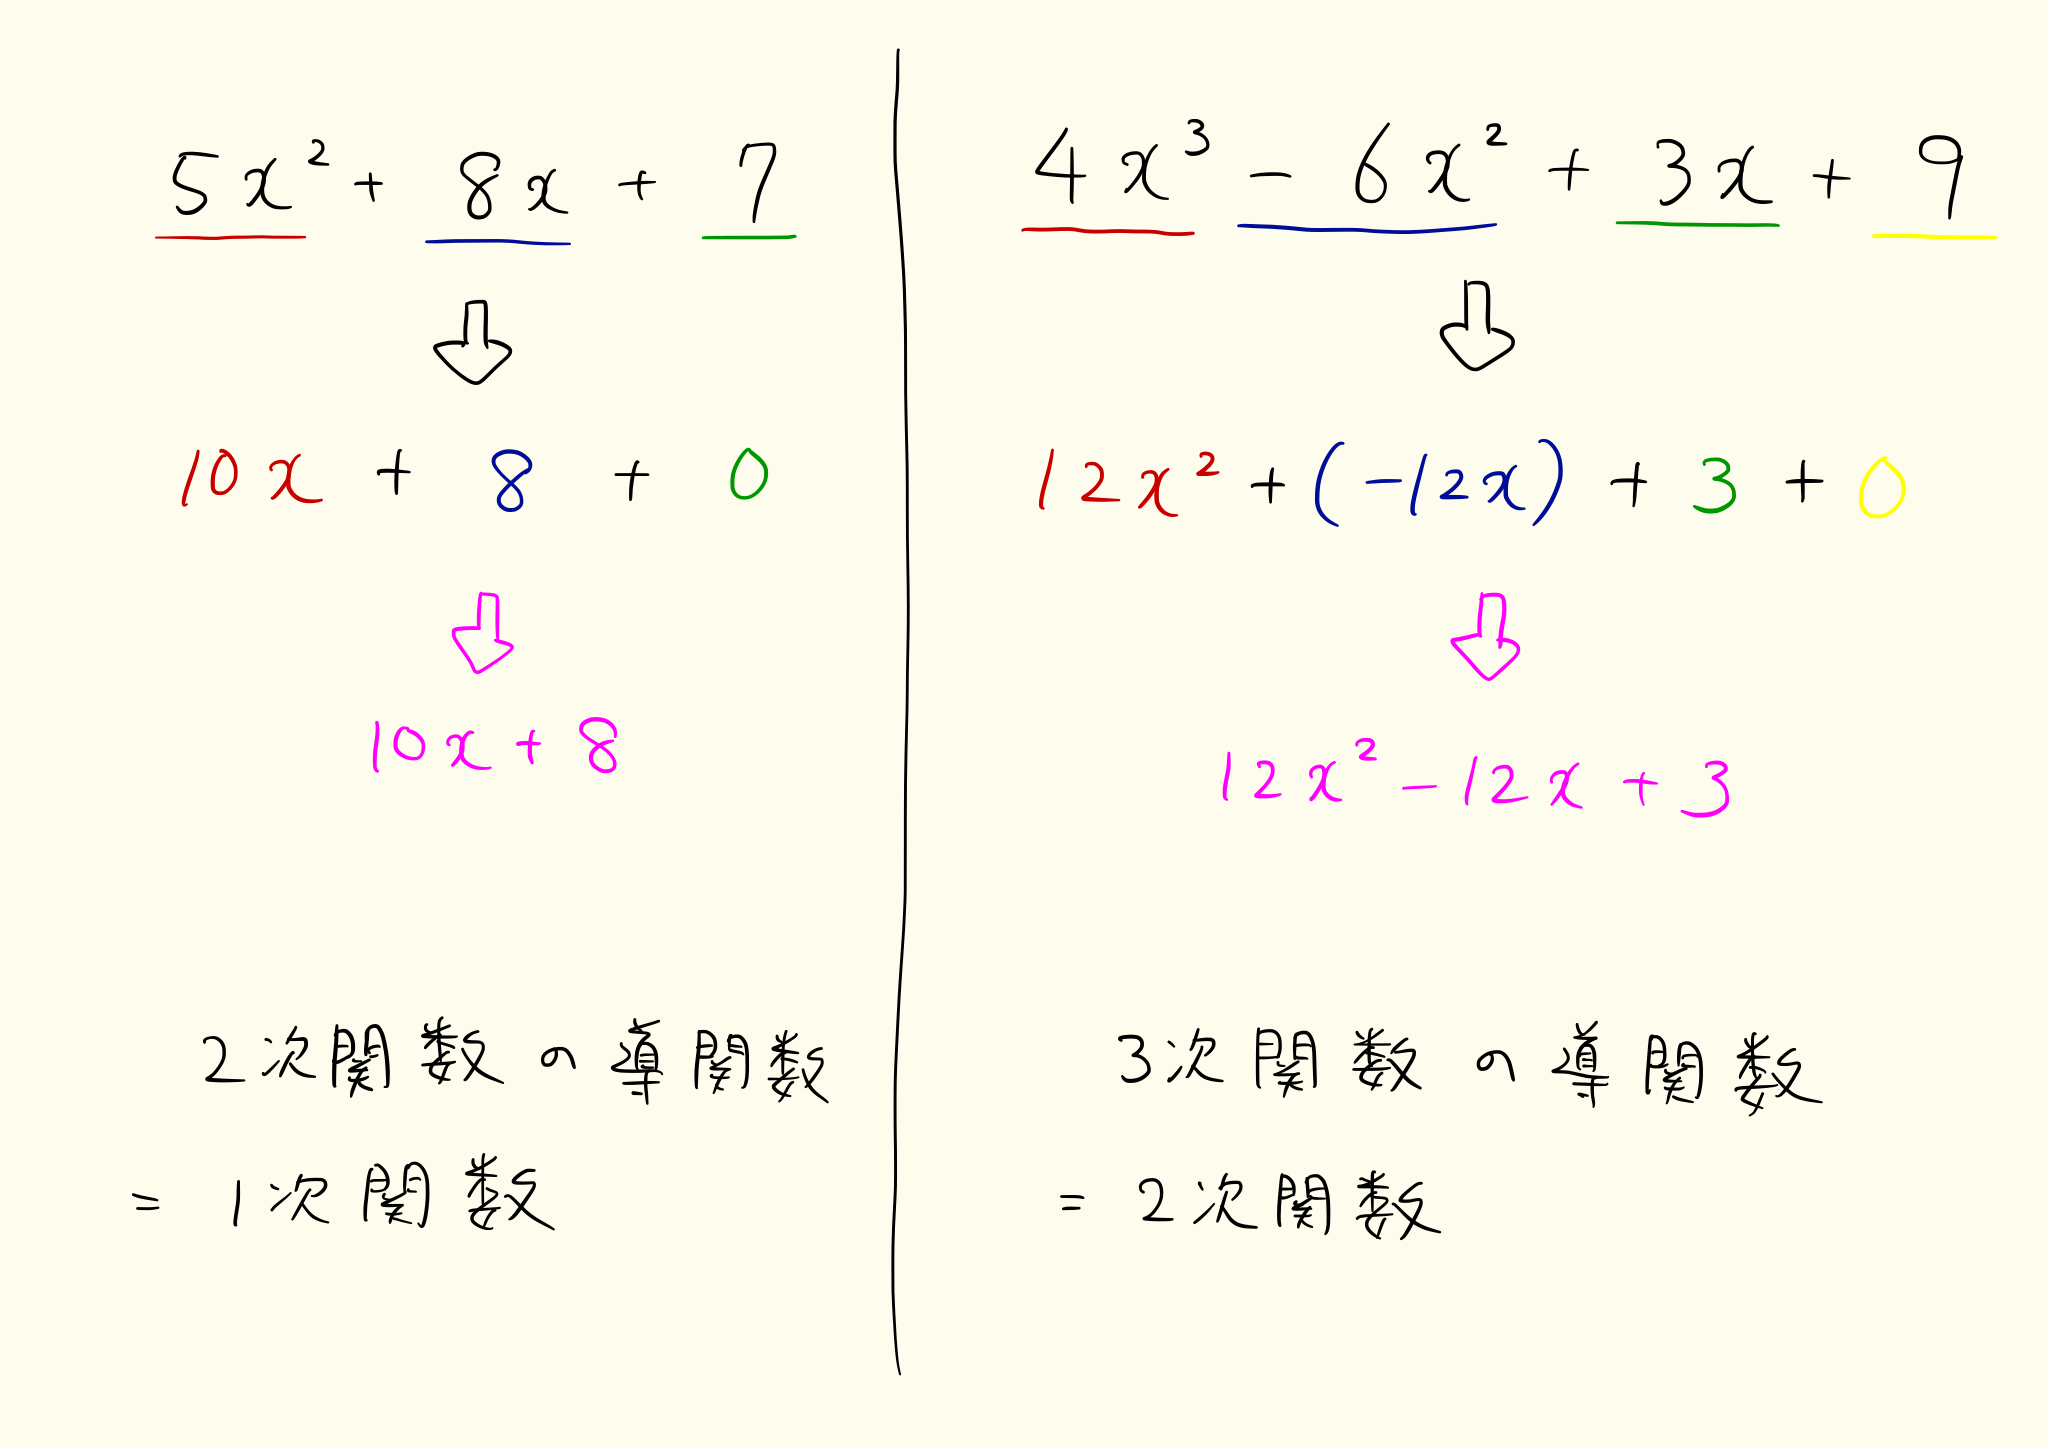 5x² + 8x + 7
10x + 8 + 0
10x + 8
2次関数の導関数
= 1次関数
4x³ - 6x² + 3x + 9
12x² + (-12x) + 3 + 0
12x² - 12x + 3
3次関数の導関数
= 2次関数